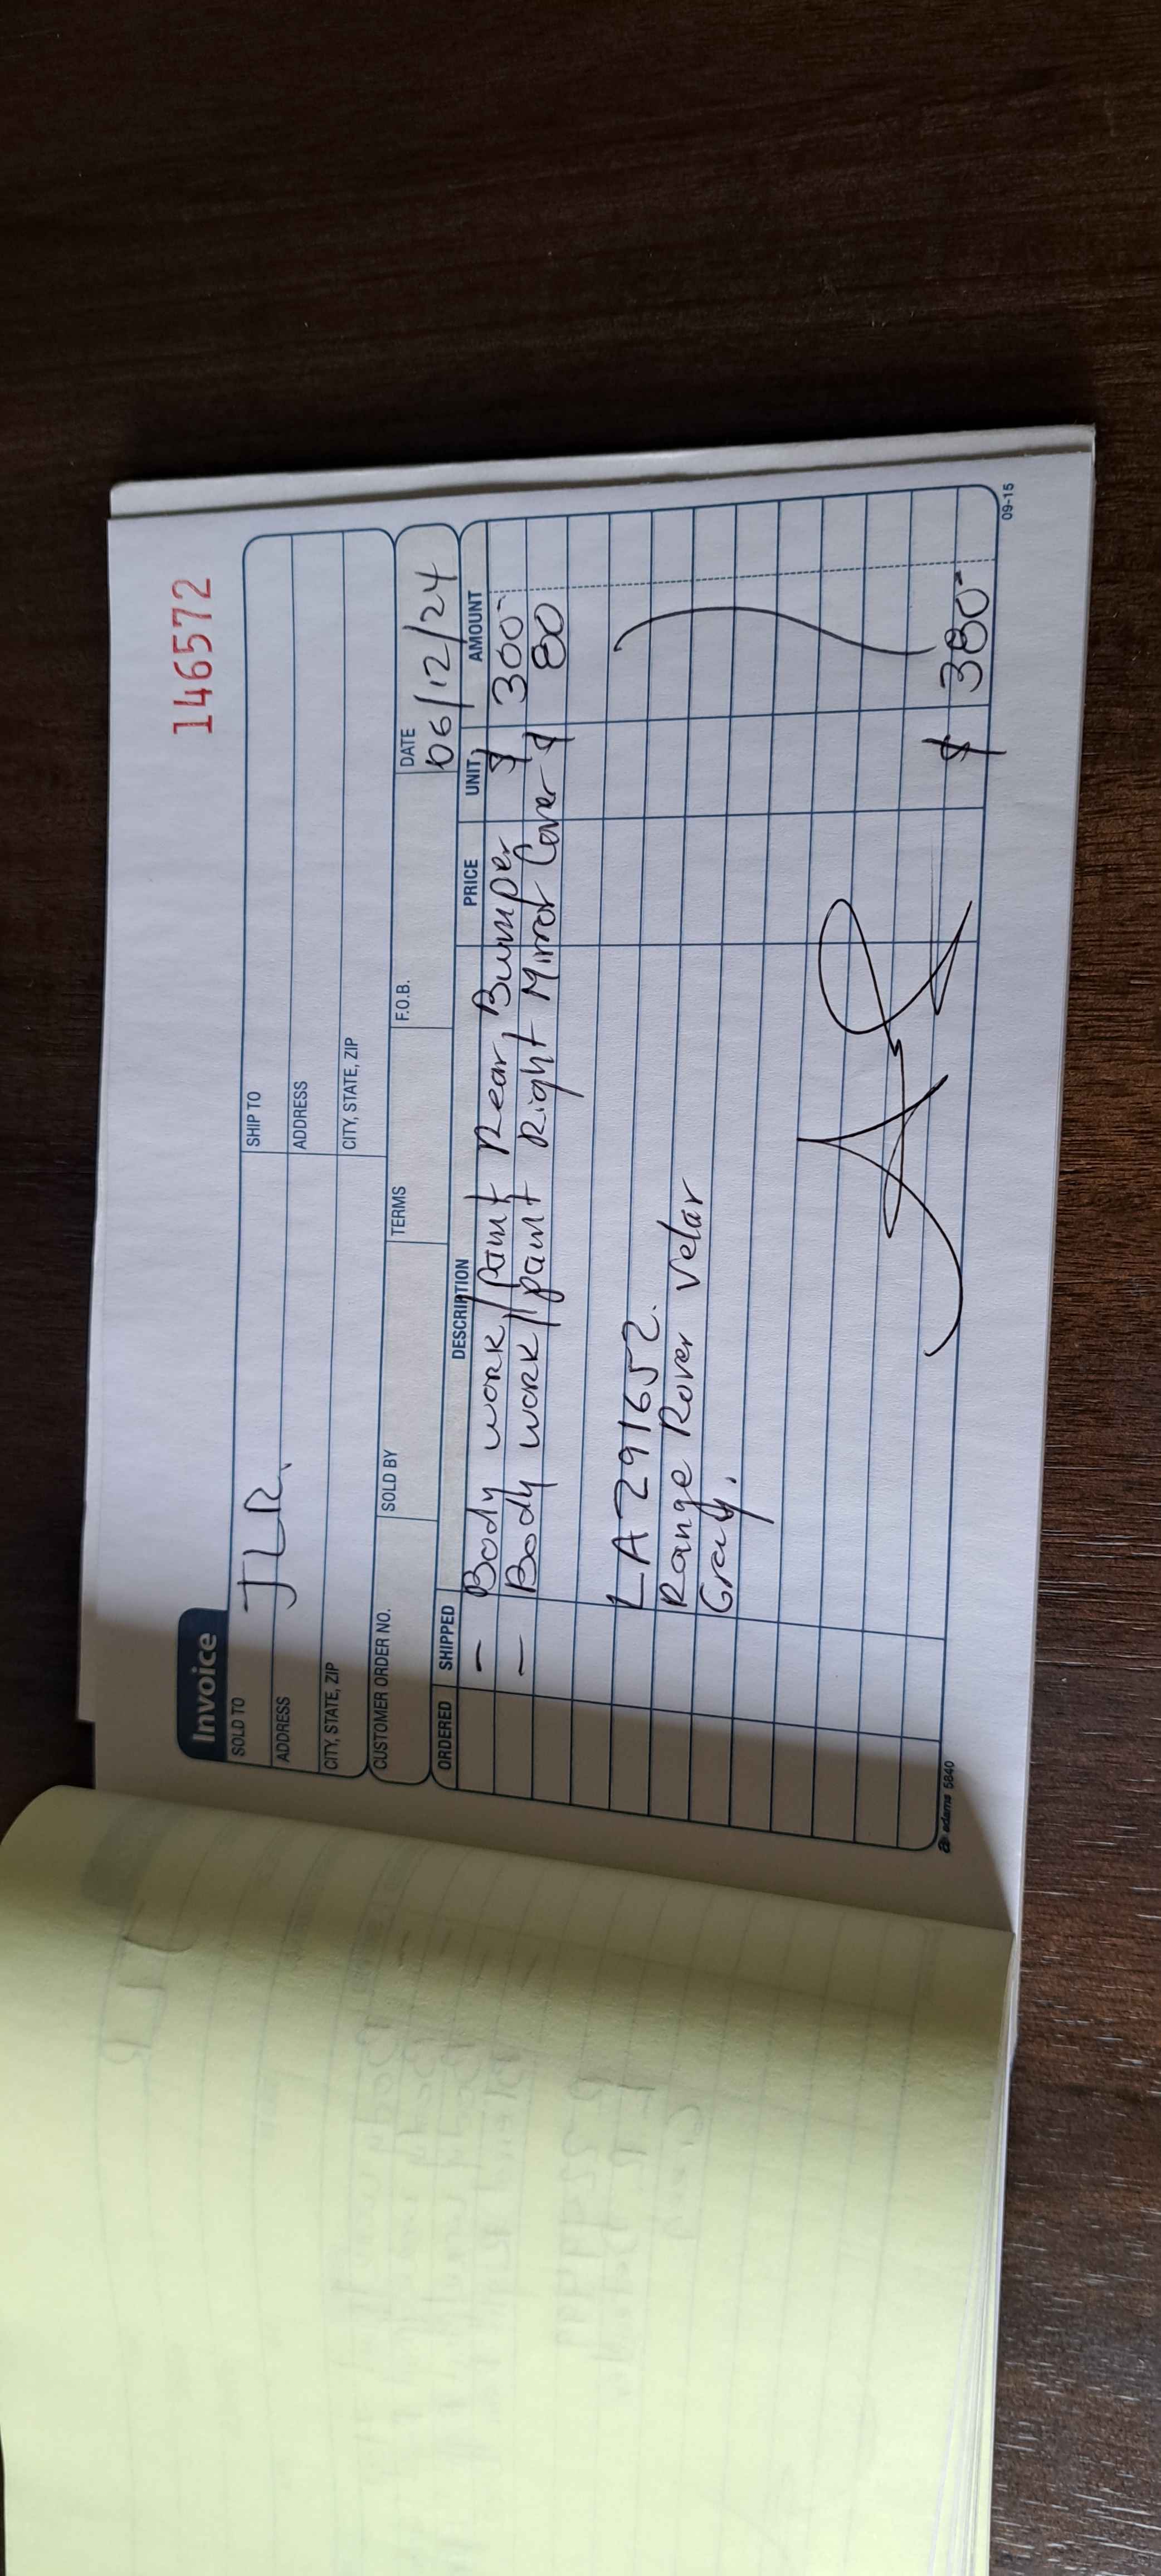 146572
Invoice
SOLD TO JLR. SHIP TO
ADDRESS ADDRESS
CITY, STATE, ZIP CITY, STATE, ZIP
CUSTOMER ORDER NO. SOLD BY TERMS F.O.B. DATE 06/12/24
ORDERED SHIPPED DESCRIPTION PRICE UNIT AMOUNT
- Body work/paint Rear Bumper $ 300-
- Body work/paint Right Mirror Cover $ 80
LA291652.
Range Rover Velar
Gray.
$ 380-
adams 5840 09-15